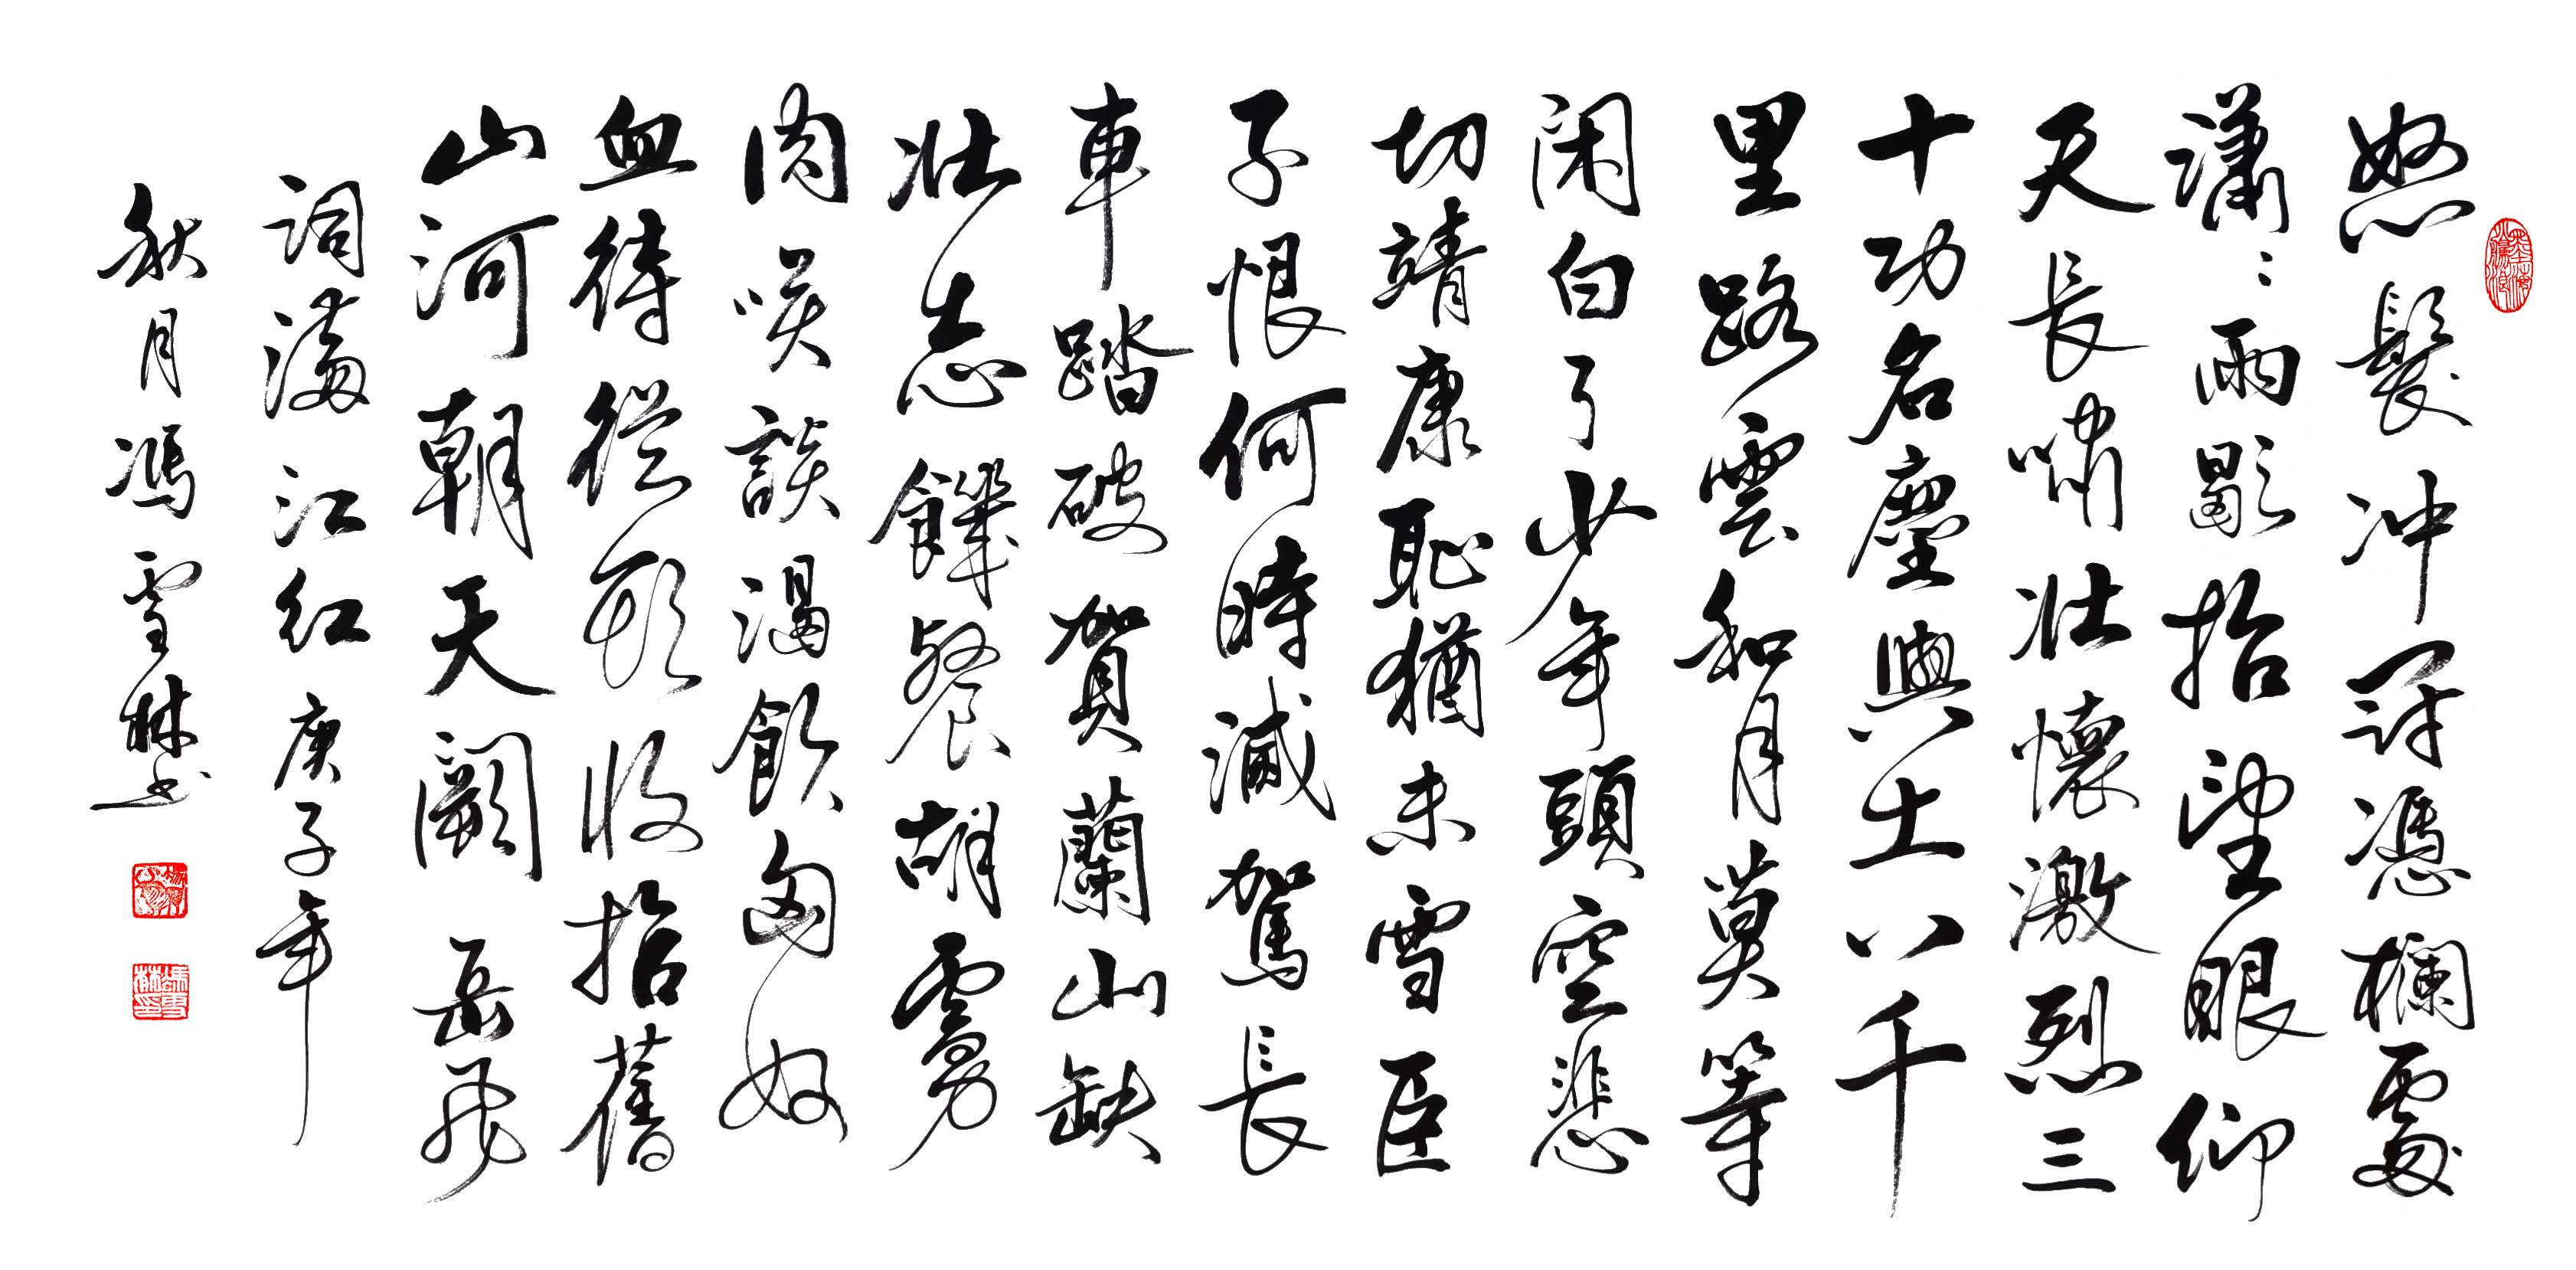 怒髮冲冠憑欄處
瀟〻雨歇抬望眼仰
天長嘯壯懷激烈三
十功名塵與土八千
里路雲和月莫等
闲白了少年頭空悲
切靖康恥猶未雪臣
子恨何時滅駕長
車踏破賀蘭山缺
壯志饑餐胡虜
肉笑談渴飲匈奴
血待從頭收拾舊
山河朝天闕 岳飛
詞滿江红 庚子年
秋月馮雪林书